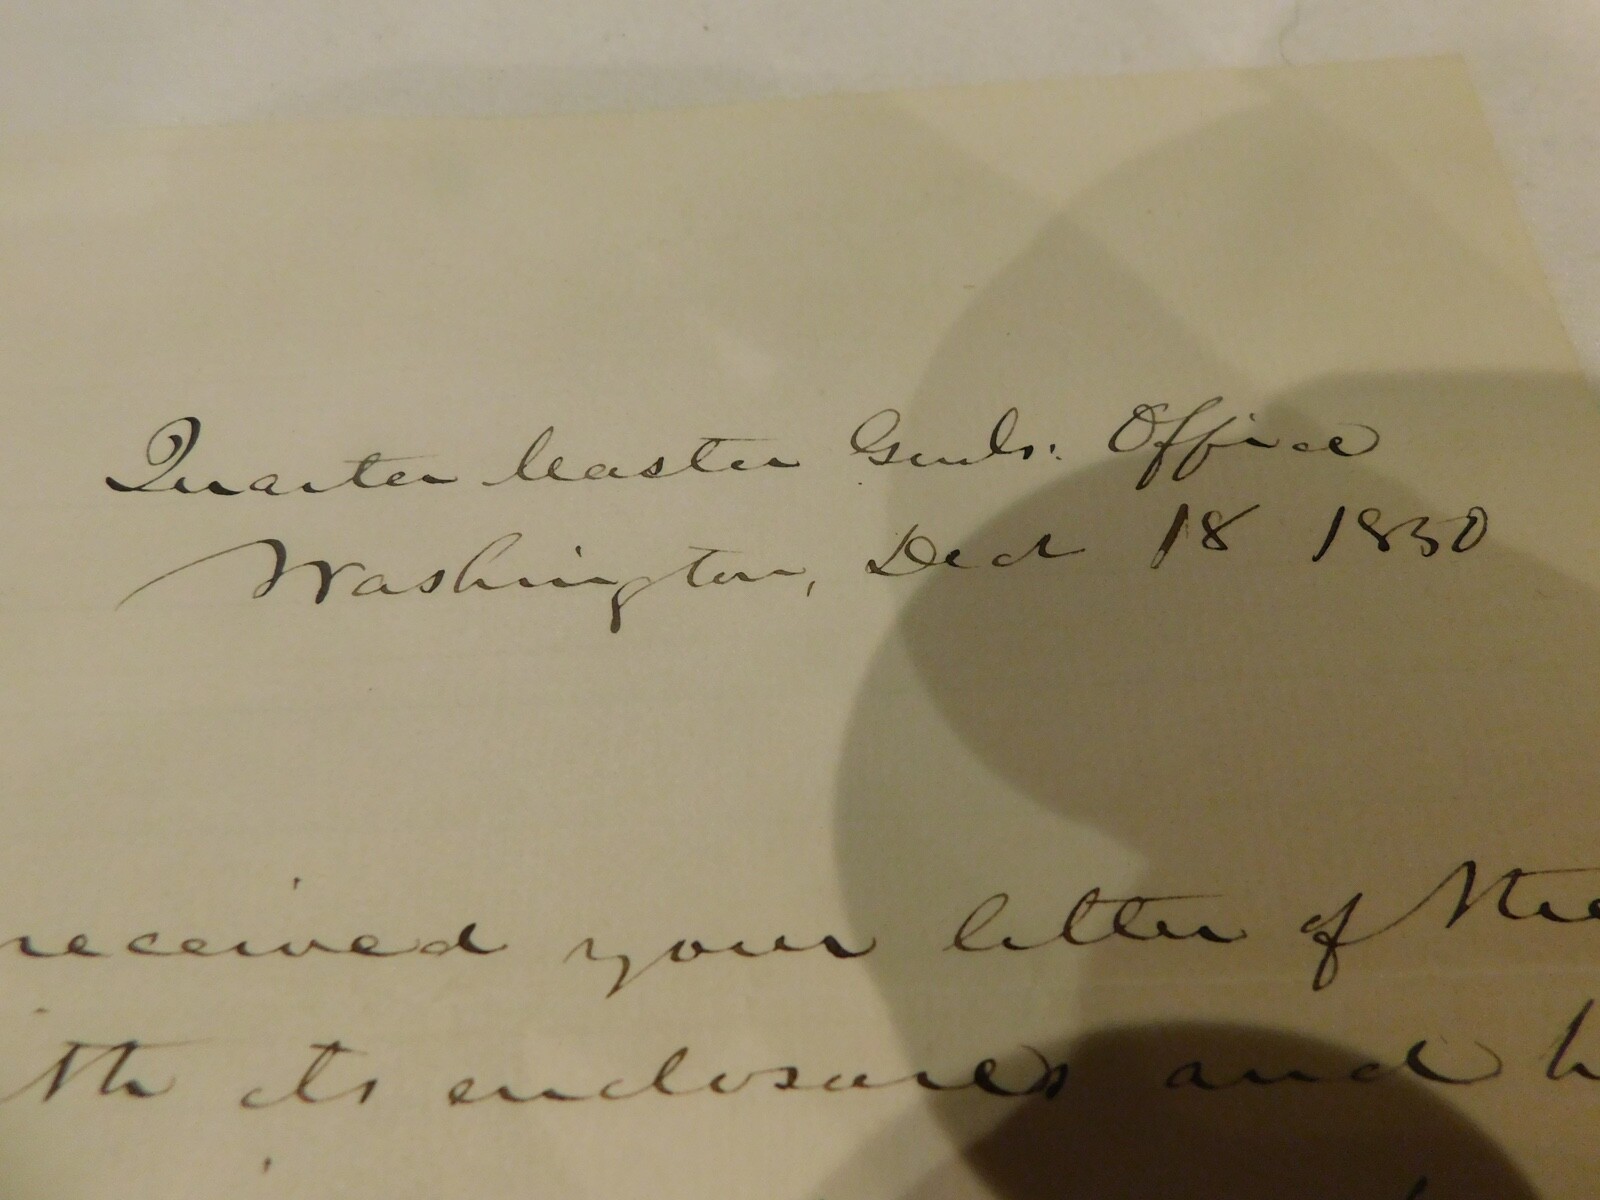 Quarter Master Genls. Office
Washington, Dec 18 1830
received your letter of the
th its enclosures and h